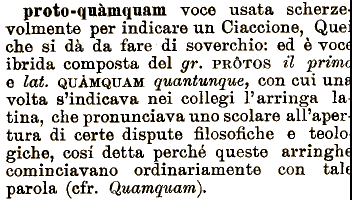 proto-quàmquam voce usata scherze-
volmente per indicare un Ciaccione, Quei
che si dà da fare di soverchio: ed è voce
ibrida composta del gr. PRÔTOS il primo
e lat. QUÀMQUAM quantunque, con cui una
volta s'indicava nei collegi l'arringa la-
tina, che pronunciava uno scolare all'aper-
tura di certe dispute filosofiche e teolo-
giche, cosí detta perché queste arringhe
cominciavano ordinariamente con tale
parola (cfr. Quamquam).